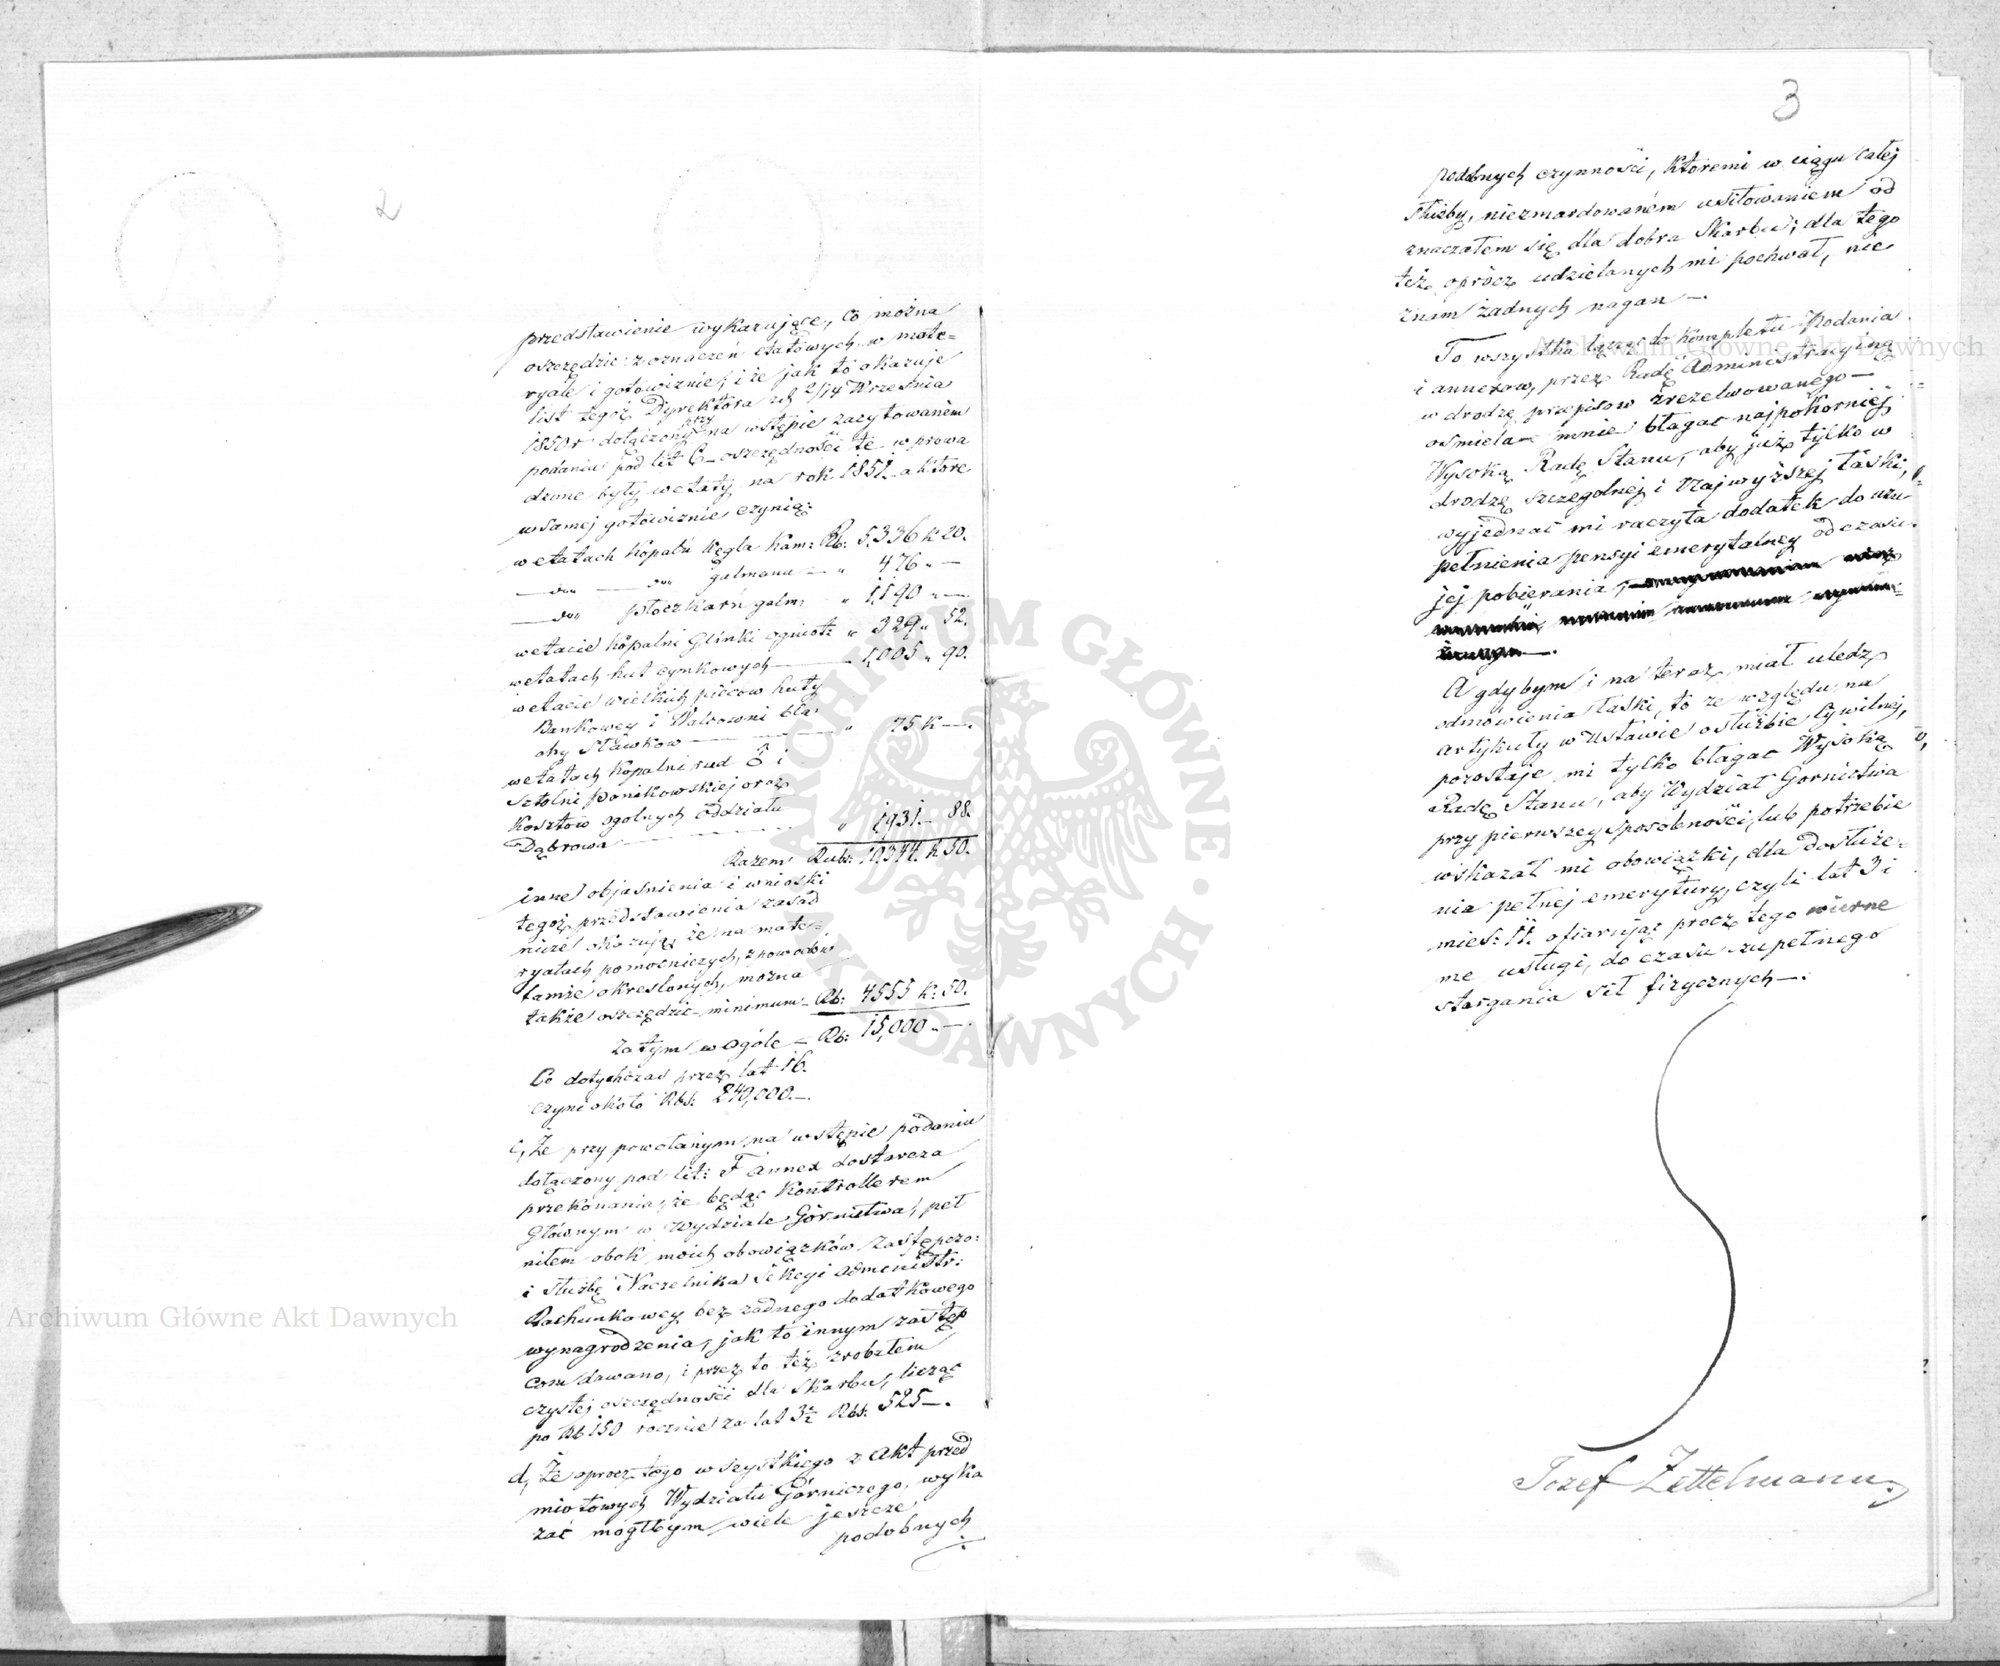 2
przedstawienie wykazujące, co można
oszczędzić z oznaczeń etatowych, w mate=
ryale i gotowiznie, i że jak to okazuje
list tegoż Dyrektora z d. 2/14 Września
1850 r dołączony przy na wstępie zacytowanem
podaniu pod lit C– oszczędności te wprowa
dzone były w etaty na rok 1851. a które
w samej gotowiznie czynią:
w etatach Kopalń węgla Kam: Rb: 5,336 k 20.
— do — do galmanu — „ 476 „ —
— do płoczkarń galm: „ 1,190 „ —
w etacie Kopalni Glinki ogniot: „ 329 „ 52.
w etatach hut cynkowych — 1,005 „ 90.
i w etacie wielkich pieców huty
Bankowey i Walcowni bla
chy Sławków — „ 75 k —.
w etatach Kopalni rud i
Sztolni Ponikowskiej oraz
Kosztów ogólnych Oddziału
Dąbrowa — „ 1931. — 88.
Razem Rub: 10,344. k 50.
inne objaśnienia i wnioski
tegoż przedstawienia zasad
nicze okazują, że na mate=
ryałach pomocniczych, z powodów
tamże określonych, można
także oszczędzić minimum — Rb: 4555 k: 50.
zatym w ogóle — Rb: 15,000 „ —.
Co dotychczas przez lat 16.
czyni około Rbs: 240,000.—.
c, Że przy powołanym na wstępie podaniu
dołączony pod lit: F annex dostarcza
przekonania, że będąc Kontrollerem
Głównym w Wydziale Górnictwa, peł
niłem obok moich obowiązków zastępczo:
i służbę Naczelnika Sekcyi Administr:
Rachunkowey bez żadnego dodatkowego
wynagrodzenia, jak to innym zastęp
com dawano, i przez to też zrobiłem
czystej oszczędności dla Skarbu, licząc
po Rb 150 rocznie za lat 3½ Rbs: 525 —.
d, Że oprócz tego wszystkiego z akt przed
miotowych Wydziału Górniczego, wyka
zać mógłbym wiele jeszcze
podobnych
3
podobnych czynności, któremi w ciągu całej
służby, niezmordowanem usiłowaniem od
znaczałem się dla dobra Skarbu; dla tego
też oprócz udzielanych mi pochwał, nie
znam żadnych nagan —.
To wszystko łącząc do kompletu Podania
i annexow, przez Radę Administracyjną
w drodze przepisow zrezelwowanego —
ośmiela mnie błagać najpokorniej
Wysoką Radę Stanu, aby już tylko w
drodze szczególnej i Najwyższej łaski,
wyjednać mi raczyła dodatek do uzu
pełnienia pensyi emerytalney od czasu
jej pobierania,
A gdybym i na teraz miał uledz
odmówienia łaski, to ze względu na
artykuły w Ustawie o służbie Cywilnej,
pozostaje mi tylko błagać Wysoką
Radę Stanu, aby Wydział Gornictwa
przy pierwszey sposobności, lub potrzebie
wskazał mi obowiązki, dla dosłuże=
nia pełnej emerytury, czyli lat 3 i
mies: 11. ofiarując prócz tego wierne
me usługi, do czasu zupełnego
stargania sił fizycznych —.
Jozef Zettelmann
Archiwum Główne Akt Dawnych
Archiwum Główne Akt Dawnych
ARCHIWUM GŁÓWNE AKT DAWNYCH